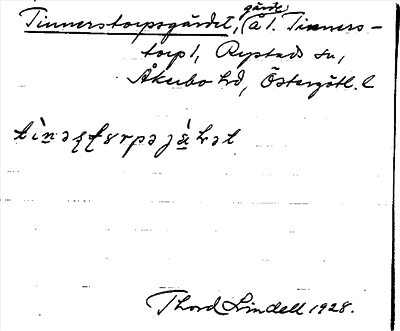 Tinnerstorpsgärdet, gärde å l. Tinners-
torp 1, Rystads sn,
Åkerbo hd, Östergötl. l
Thord Lindell 1928.